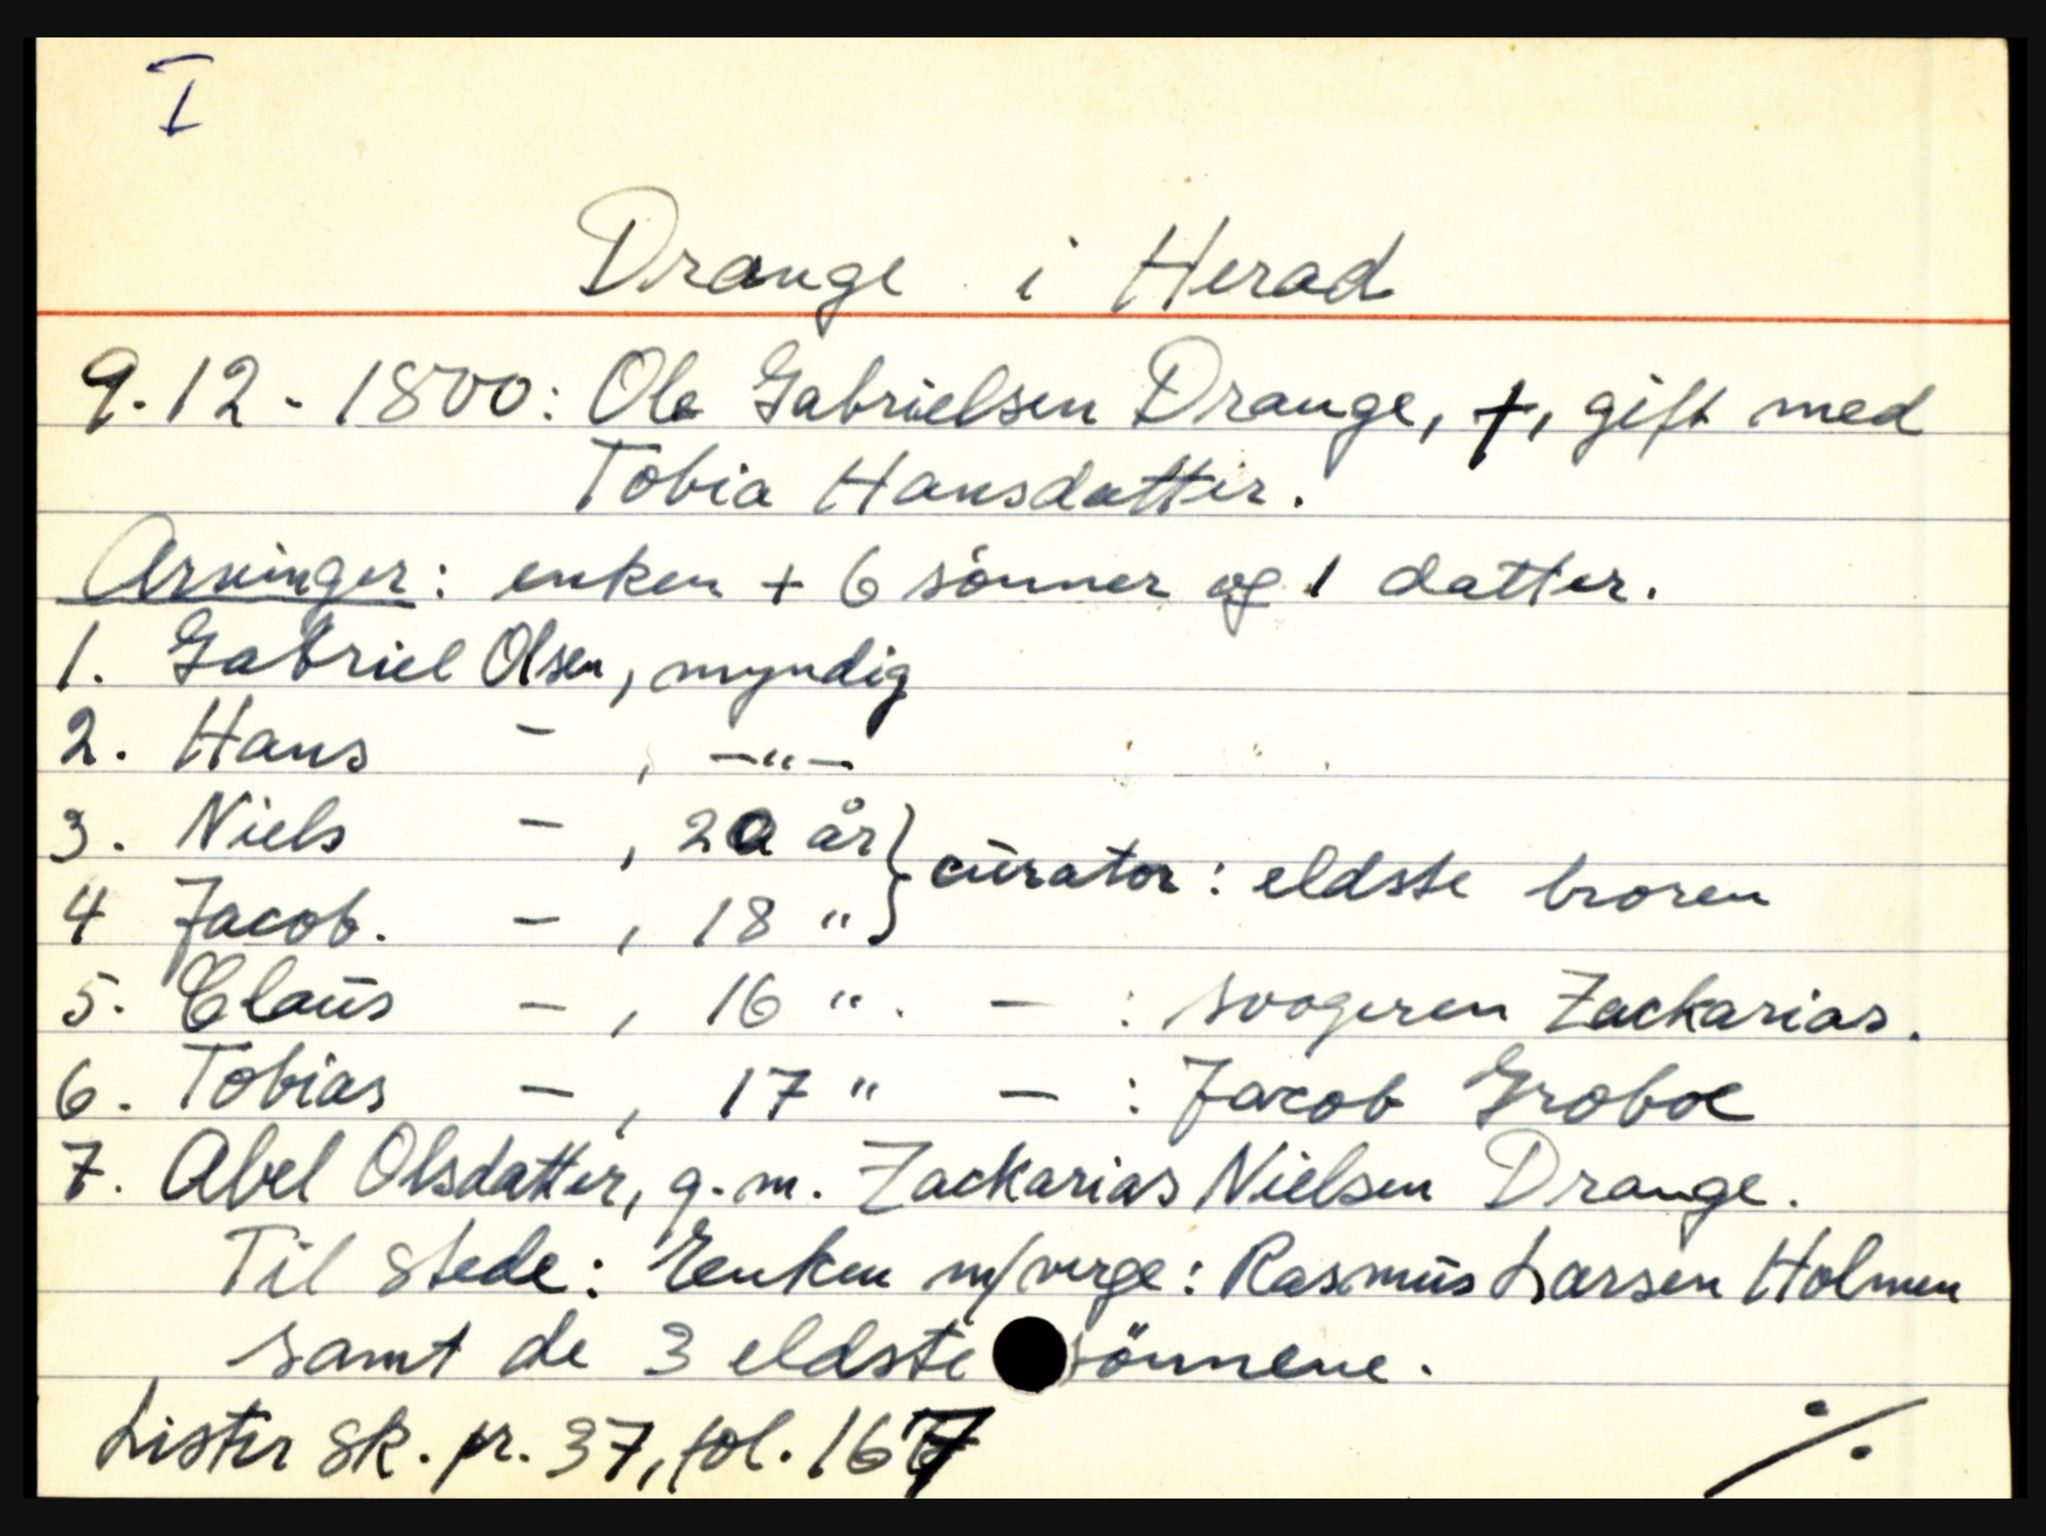 I
Drange i Herad
9.12-1800: Ole Gabrielsen Drange, †, gift med
Tobia Hansdatter.
Arvinger: enken + 6 sönner og 1 datter.
1. Gabriel Olsen, myndig
2. Hans - , -"-
3. Niels - , 20 år } curator: eldste broren
4 Jacob. - , 18 "
5. Claus - , 16 " . - : svogeren Zackarias.
6. Tobias - , 17 " - : Jacob Groboe
7. Abel Olsdatter, g.m. Zackarias Nielsen Drange.
Til stede: Enken m/verge: Rasmus Larsen Holmen
samt de 3 eldste sönnene.
Lister sk. pr. 37, fol. 167
./.